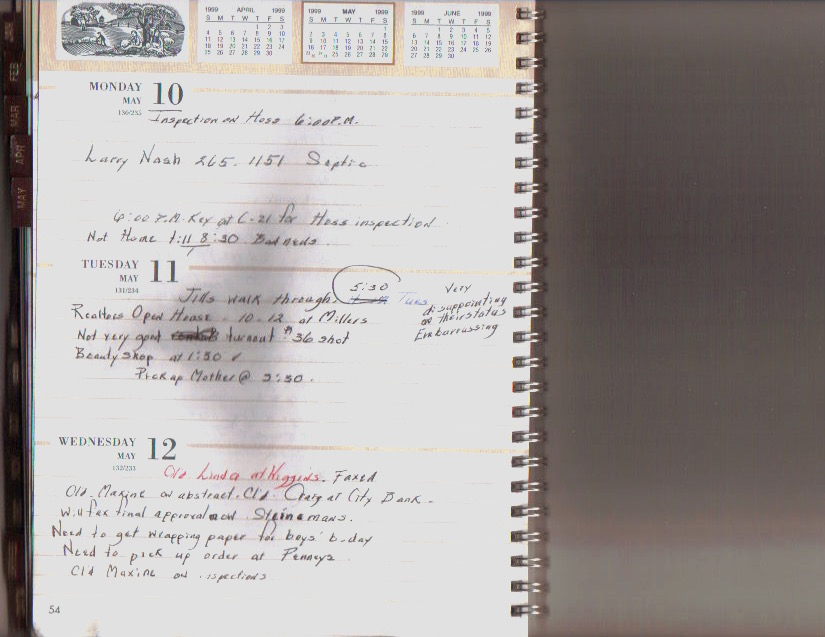 1999 APRIL 1999
S M T W T F S
1 2 3
4 5 6 7 8 9 10
11 12 13 14 15 16 17
18 19 20 21 22 23 24
25 26 27 28 29 30
1999 MAY 1999
S M T W T F S
1
2 3 4 5 6 7 8
9 10 11 12 13 14 15
16 17 18 19 20 21 22
1999 JUNE 1999
S M T W T F S
1 2 3 4 5
6 7 8 9 10 11 12
13 14 15 16 17 18 19
20 21 22 23 24 25 26
27 28 29 30
FEB
MAR
APR
MAY
MONDAY
MAY 10
130/235
Inspection on Hoss 6:00 P.M.
Larry Nash 265-1151 Septic
6:00 P.M. Key at C-21 for Hoss inspection.
Not Home till 8:30 Bad news.
TUESDAY
MAY 11
131/234
5:30
Jills walk through. Tues
Very
disappointing
on their status
Embarrassing
Realtors Open House - 10-12 at Millers
Not very good turnout $36 shot
Beauty Shop at 1:30 ✓
Pick up Mother @ 3:30.
WEDNESDAY
MAY 12
132/233
Cld Linda at Higgins. Faxed
Cld. Maxine on abstract. Cld. Craig at City Bank -
Will fax final approval now Steinemans.
Need to get wrapping paper for boys' b-day
Need to pick up order at Penneys
Cld Maxine on inspections
54